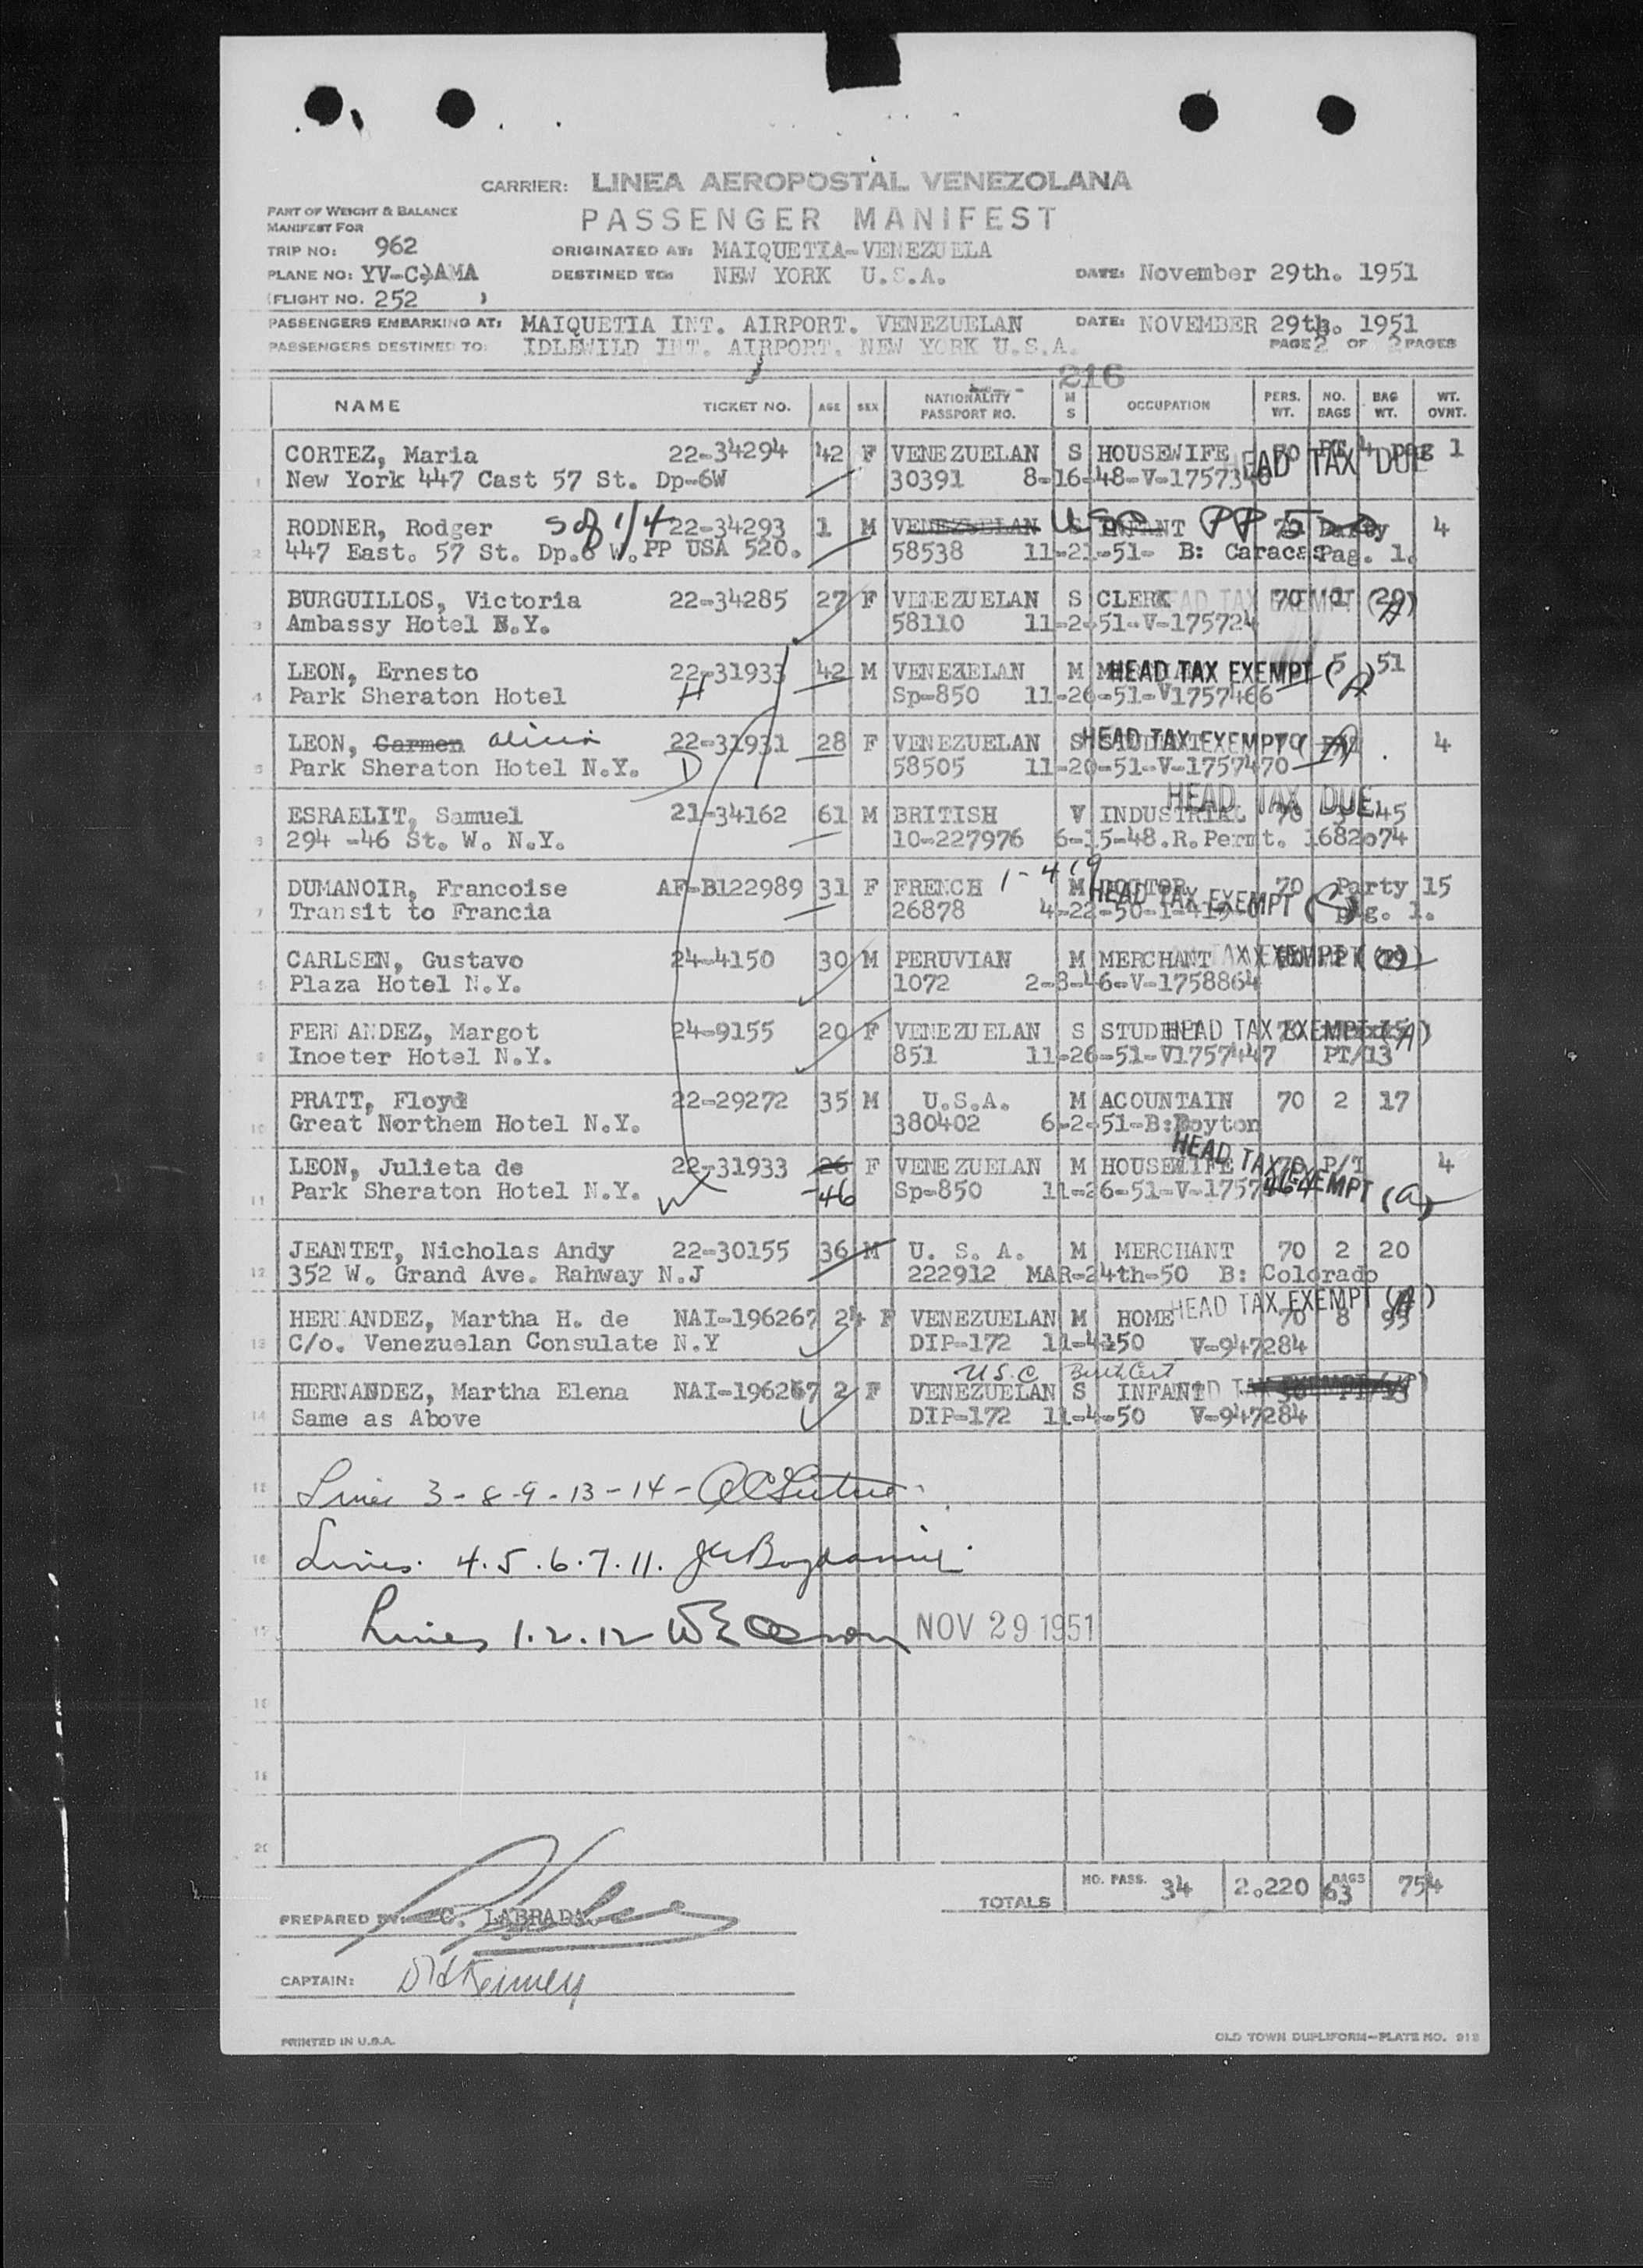 CARRIER: LINEA AEROPOSTAL VENEZOLANA
PART OF WEIGHT & BALANCE
MANIFEST FOR
PASSENGER MANIFEST
TRIP NO: 962 ORIGINATED AT: MAIQUETIA-VENEZUELA
PLANE NO: YV-C-AMA DESTINED TO: NEW YORK U.S.A. DATE: November 29th. 1951
(FLIGHT NO. 252 )
PASSENGERS EMBARKING AT: MAIQUETIA INT. AIRPORT. VENEZUELAN DATE: NOVEMBER 29th. 1951
PASSENGERS DESTINED TO: IDLEWILD INT. AIRPORT. NEW YORK U.S.A. PAGE 2 OF 2 PAGES
216
NAME TICKET NO. AGE SEX NATIONALITY PASSPORT NO. M S OCCUPATION PERS. WT. NO. BAGS BAG WT. WT. OVNT.
CORTEZ, Maria 22-34294 42 F VENEZUELAN S HOUSEWIFE 70 PT 4 pag 1
HEAD TAX DUE
1 New York 447 Cast 57 St. Dp-6W 30391 8-16-48-V-1757346
RODNER, Rodger S of 1/4 22-34293 1 M VENEZUELAN USC S INFANT PP 520 Party 4
2 447 East. 57 St. Dp.6 W. PP USA 520. 58538 11-21-51- B: Caracas Pag. 1.
BURGUILLOS, Victoria 22-34285 27 F VENEZUELAN S CLERK HEAD TAX EXEMPT (A) 70 1 20
3 Ambassy Hotel N.Y. 58110 11-2-51-V-175724
LEON, Ernesto 22-31933 42 M VENEZELAN M HEAD TAX EXEMPT (A) 5 51
4 Park Sheraton Hotel H Sp-850 11-26-51-V1757466
LEON, Carmen Alicia 22-31931 28 F VENEZUELAN S STUDENT HEAD TAX EXEMPT (A) 70 4
5 Park Sheraton Hotel N.Y. D 58505 11-20-51-V-1757470
HEAD TAX DUE
ESRAELIT, Samuel 21-34162 61 M BRITISH V INDUSTRIAL 70 3 45
6 294 -46 St. W. N.Y. 10-227976 6-15-48.R.Permt. 1682074
DUMANOIR, Francoise AF-B122989 31 F FRENCH 1-419 M DOCTOR 70 Party 15
HEAD TAX EXEMPT
7 Transit to Francia 26878 4-22-50-I-419 pag. 1.
CARLSEN, Gustavo 24-4150 30 M PERUVIAN M MERCHANT TAX EXEMPT
8 Plaza Hotel N.Y. 1072 2-8-46-V-1758864
FERNANDEZ, Margot 24-9155 20 F VENEZUELAN S STUDENT HEAD TAX EXEMPT (A)
9 Inoeter Hotel N.Y. 851 11-26-51-V1757447 PT/13
PRATT, Floyd 22-29272 35 M U.S.A. M ACOUNTAIN 70 2 17
10 Great Northem Hotel N.Y. 380402 6-2-51-B:Doyton
LEON, Julieta de 22-31933 26 F VENEZUELAN M HOUSEWIFE 70 P/T 4
HEAD TAX EXEMPT (a)
11 Park Sheraton Hotel N.Y. 46 Sp-850 11-26-51-V-1757464
JEANTET, Nicholas Andy 22-30155 36 M U. S. A. M MERCHANT 70 2 20
12 352 W. Grand Ave. Rahway N.J 222912 MAR-24th-50 B: Colorado
HEAD TAX EXEMPT (A)
HERNANDEZ, Martha H. de NAI-196267 24 F VENEZUELAN M HOME 70 8 95
13 C/o. Venezuelan Consulate N.Y DIP-172 11-4-50 V-947284
USC Birth Cert
HERNANDEZ, Martha Elena NAI-196267 2 F VENEZUELAN S INFANT
14 Same as Above DIP-172 11-4-50 V-947284
15 Lines 3-8-9-13-14-
16 Lines. 4.5.6.7.11.
17 Lines 1.2.12 NOV 29 1951
18
19
20
TOTALS NO. PASS. 34 2.220 BAGS 63 754
PREPARED BY: C. LABRADA
CAPTAIN:
PRINTED IN U.S.A. OLD TOWN DUPLIFORM-PLATE NO. 912